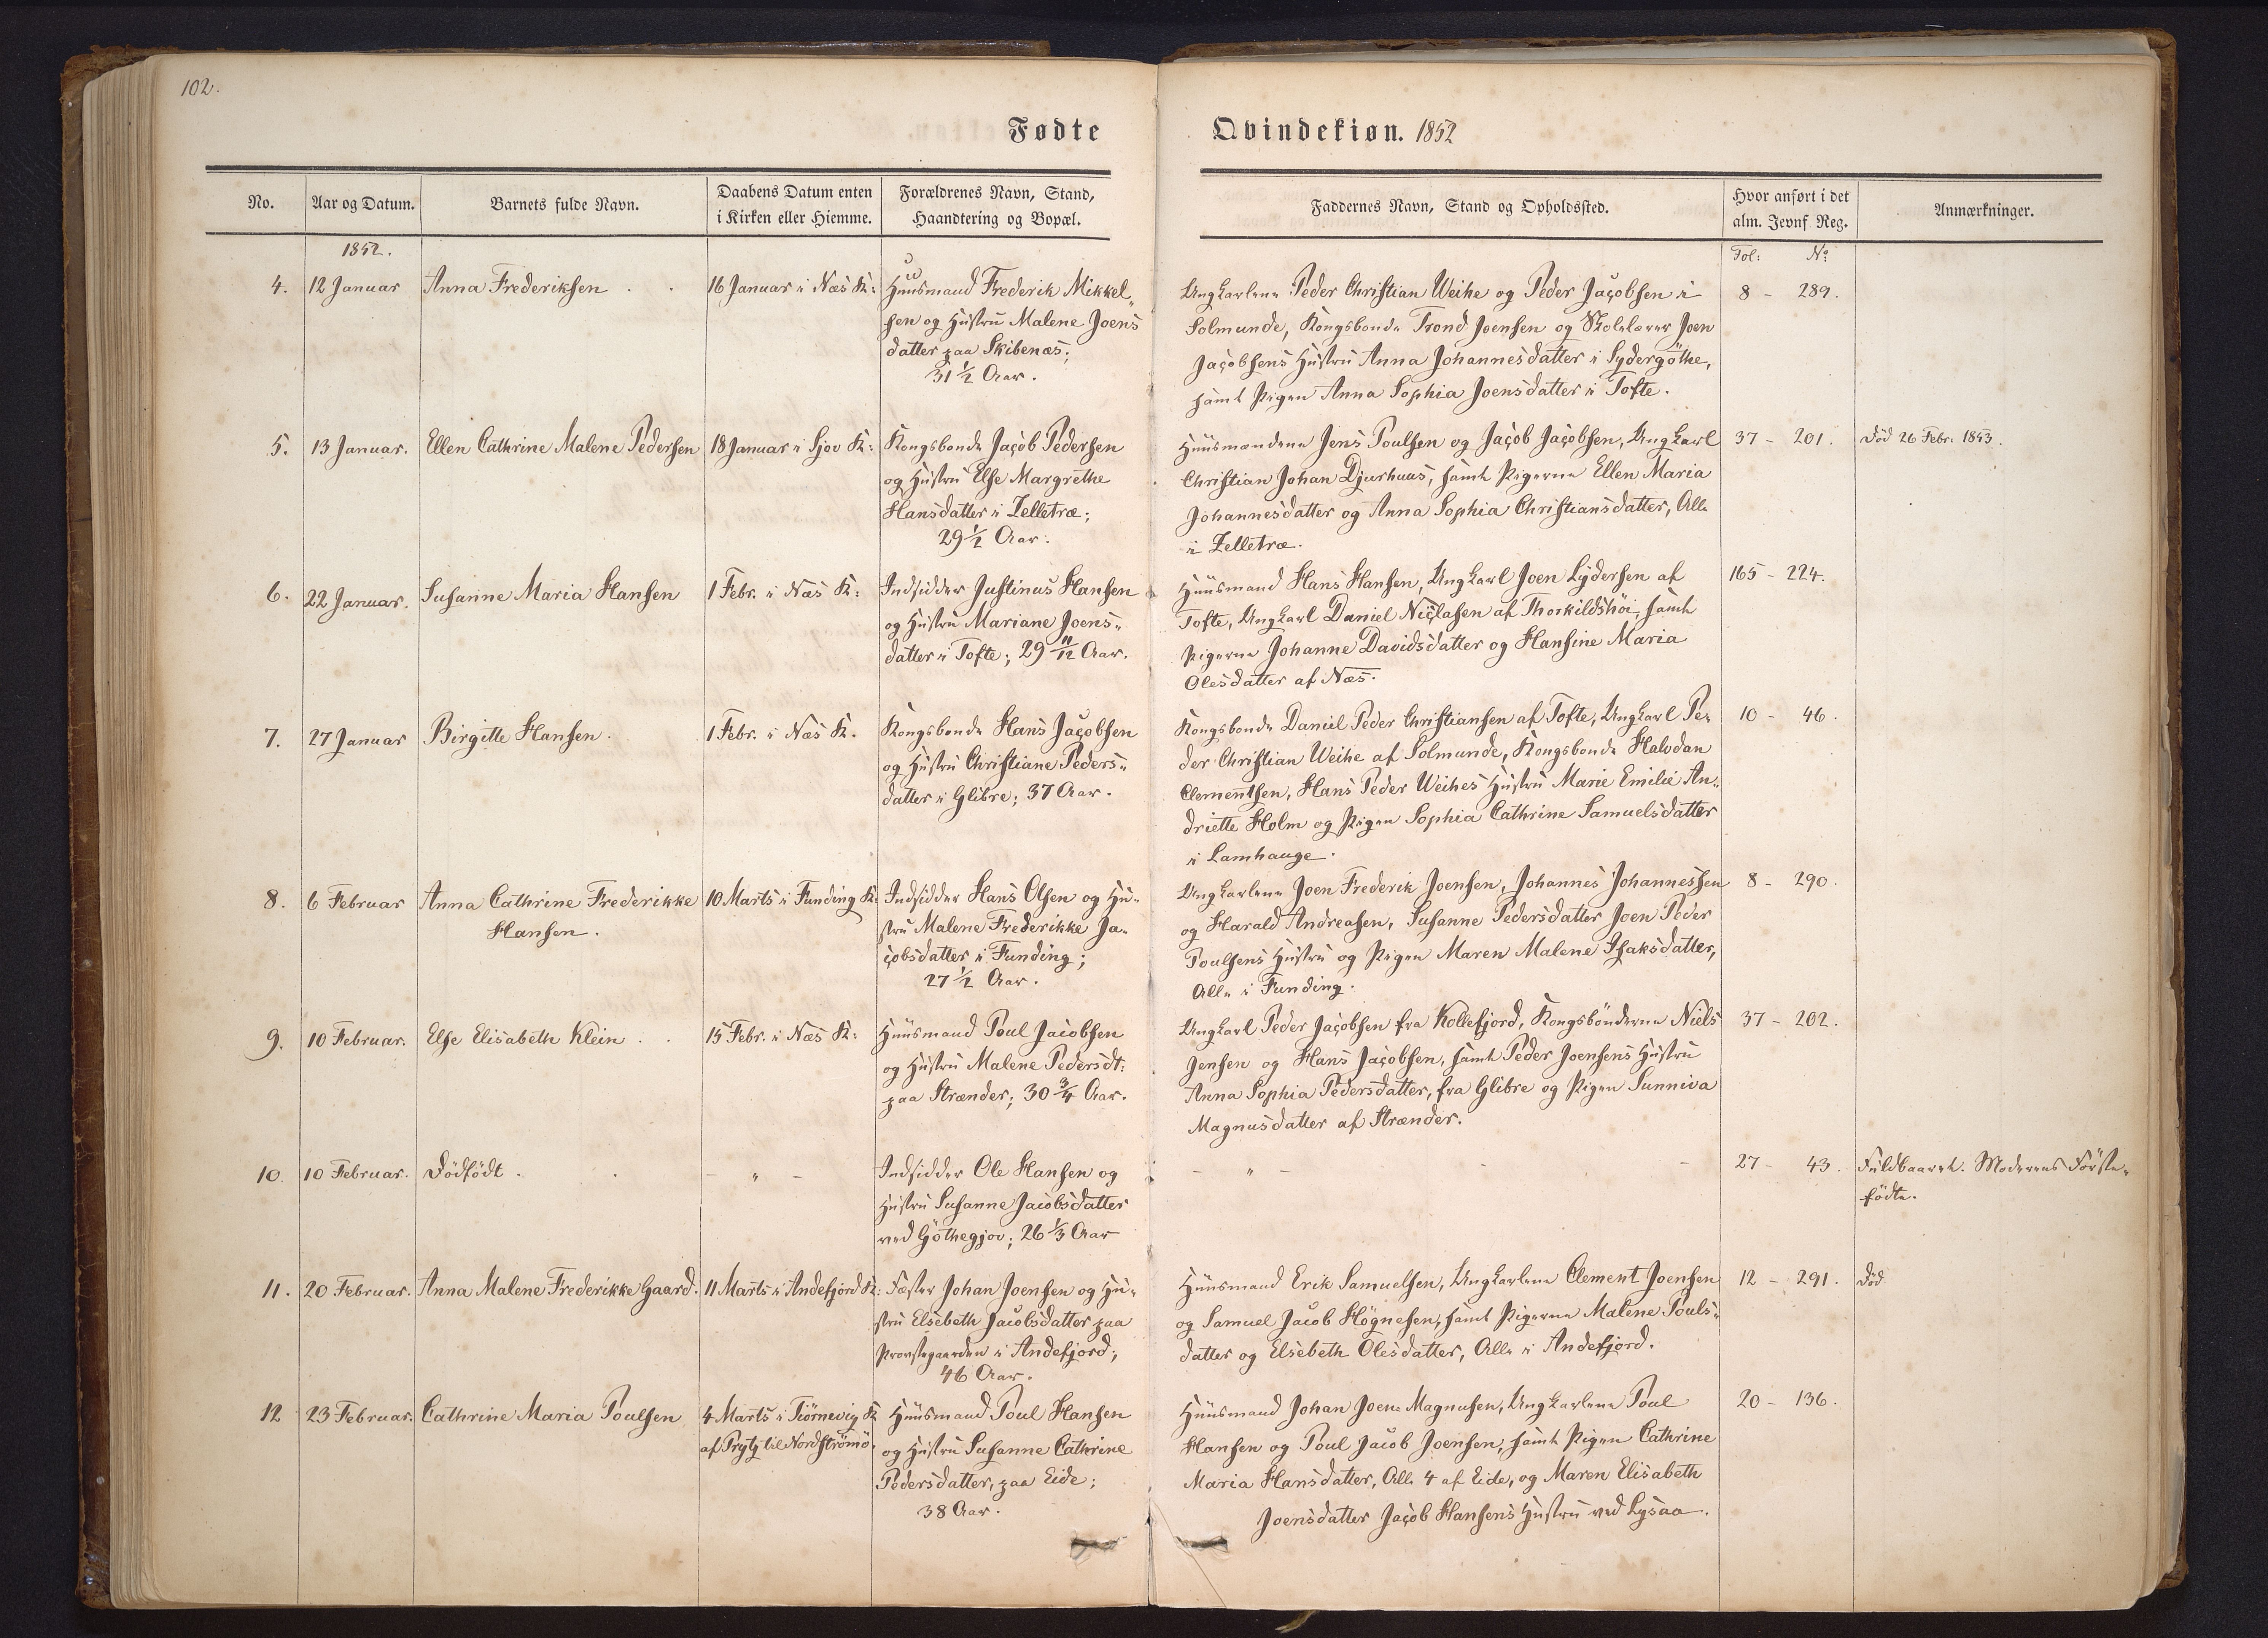 102.
Fødte
Qvindekiøn. 1852
No.
Aar og Datum.
Barnets fulde Navn.
Daabens Datum enten
i Kirken eller Hiemme.
Forældrenes Navn, Stand,
Haandtering og Bopæl.
Faddernes Navn, Stand og Opholdssted.
Hvor anført i det
alm. Jevnf Reg.
Anmærkninger.
1852.
Fol: No
4.
12 Januar
Anna Frederiksen
16 Januar i Næs K:
Huusmand Frederik Mikkel-
sen og Hustru Malene Joens
datter paa Skibenæs;
31 1/2 Aar.
Ungkarlene Peder Christian Weihe og Peder Jacobsen i
Solmunde, Kongsbonde Trond Joensen og Skolelærer Joen
Jacobsens Hustru Anna Johannesdatter i Sydergøthe,
samt Pigen Anna Sophia Joensdatter i Tofte.
8 - 289.
5.
13 Januar.
Ellen Cathrine Malene Pedersen
18 Januar i Sjov K:
Kongsbonde Jacob Pedersen
og Hustru Else Margrethe
Hansdatter i Zelletræ;
29 1/2 Aar.
Huusmændene Jens Poulsen og Jacob Jacobsen, Ungkarl
Christian Johan Djurhuus, samt Pigerne Ellen Maria
Johannesdatter og Anna Sophia Christiansdatter, Alle
i Zelletræ.
37 - 201.
Død 26 Febr. 1853.
6.
22 Januar.
Susanne Maria Hansen
1 Febr. i Næs K:
Indsidder Justinus Hansen
og Hustru Mariane Joens-
datter i Tofte; 29 11/12 Aar.
Huusmand Hans Hansen, Ungkarl Joen Lydersen af
Tofte, Ungkarl Daniel Niclasen af Thorkildshøi, samt
Pigerne Johanne Davidsdatter og Hansine Maria
Olesdatter af Næs.
165 - 224.
7.
27 Januar
Birgitte Hansen
1 Febr. i Næs K.
Kongsbonde Hans Jacobsen
og Hustru Christiane Peders-
datter i Glibre; 37 Aar.
Kongsbonde Daniel Peder Christiansen af Tofte, Ungkarl Pe-
der Christian Weihe af Solmunde, Kongsbonde Halvdan
Clementsen, Hans Peder Weihes Hustru Marie Emilie An-
driette Holm og Pigen Sophia Cathrine Samuelsdatter
i Lamhauge.
10 - 46.
8.
6 Februar
Anna Cathrine Frederikke
Hansen.
10 Marts i Funding K:
Indsidder Hans Olsen og Hu-
stru Malene Frederikke Ja-
cobsdatter i Funding;
27 1/2 Aar.
Ungkarlene Joen Frederik Joensen, Johannes Johannessen
og Harald Andreasen, Susanne Pedersdatter Joen Peder
Poulsens Hustru og Pigen Maren Malene Isaksdatter,
Alle i Funding.
8 - 290.
9.
10 Februar.
Else Elisabeth Klein
15 Febr. i Næs K:
Huusmand Poul Jacobsen
og Hustru Malene Pedersdt:
paa Strænder; 30 3/4 Aar.
Ungkarl Peder Jacobsen fra Kollefjord, Kongsbønderne Niels
Jensen og Hans Jacobsen, samt Peder Joensens Hustru
Anna Sophia Pedersdatter, fra Glibre og Pigen Sunniva
Magnusdatter af Strænder.
37 - 202.
10.
10 Februar.
Dødfødt.
- " -
Indsidder Ole Hansen og
Hustru Susanne Jacobsdatter
ved Gøthegjov; 26 1/3 Aar
- " -
27 - 43.
Fuldbaaret. Moderens Første-
fødte.
11.
20 Februar.
Anna Malene Frederikke Gaard.
11 Marts i Andefjord K:
Fæster Johan Joensen og Hu-
stru Elsebeth Jacobsdatter paa
Provstegaarden i Andefjord;
46 Aar.
Huusmand Erik Samuelsen, Ungkarlene Clement Joensen
og Samuel Jacob Høgnesen, samt Pigerne Malene Pouls-
datter og Elsebeth Olesdatter, Alle i Andefjord.
12 - 291.
Død
12
23 Februar.
Cathrine Maria Poulsen
4 Marts i Tiørnevig K
af Prstj til Nordstrømø.
Huusmand Poul Hansen
og Hustru Susanne Cathrine
Pedersdatter, paa Eide;
38 Aar.
Huusmand Johan Joen Magnusen, Ungkarlene Poul
Hansen og Poul Jacob Joensen, samt Pigen Cathrine
Maria Hansdatter, Alle 4 af Eide, og Maren Elisabeth
Joensdatter Jacob Hansens Hustru ved Lysaa.
20 - 136.